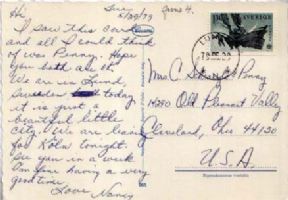 Hi
5/29/79
I saw this card
and all I could think
of was Penny. Hope
you both are
We are in Lund
Sweden today
it is just a
beautiful little
city. We are leaving
for Köln tonight.
See you in a week
I'm sure having a very
good time.
Love Nancy
SVERIGE
LUND
Mrs C.
14280 Old Pleasant Valley
Cleveland, Ohio 44130
U.S.A.